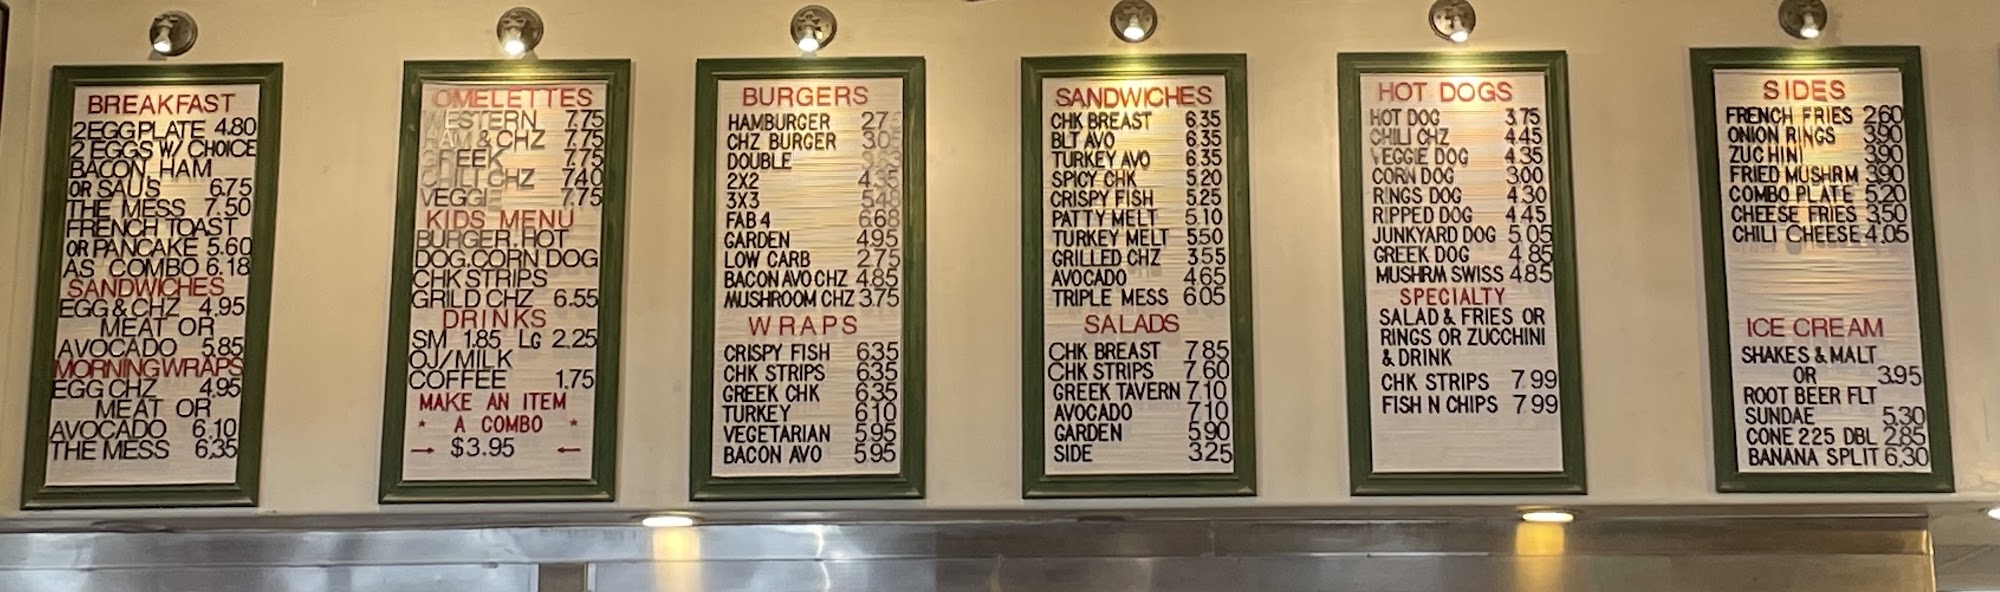 BREAKFAST
2 EGG PLATE 4.80
2 EGGS W/ CHOICE
BACON, HAM
OR SAUS 6.75
THE MESS 7.50
FRENCH TOAST
OR PANCAKE 5.60
AS COMBO 6.18
SANDWICHES
EGG & CHZ 4.95
MEAT OR
AVOCADO 5.85
MORNING WRAPS
EGG CHZ 4.95
MEAT OR
AVOCADO 6.10
THE MESS 6.35
OMELETTES
WESTERN 7.75
HAM & CHZ 7.75
GREEK 7.75
CHILI CHZ 7.40
VEGGIE 7.75
KIDS MENU
BURGER, HOT
DOG, CORN DOG
CHK STRIPS
GRILD CHZ 6.55
DRINKS
SM 1.85 LG 2.25
OJ/MILK
COFFEE 1.75
MAKE AN ITEM
* A COMBO *
→ $3.95 ←
BURGERS
HAMBURGER
CHZ BURGER
DOUBLE
2X2 4.35
3X3 5.48
FAB 4 6.68
GARDEN 4.95
LOW CARB 2.75
BACON AVO CHZ 4.85
MUSHROOM CHZ 3.75
WRAPS
CRISPY FISH 6.35
CHK STRIPS 6.35
GREEK CHK 6.35
TURKEY 6.10
VEGETARIAN 5.95
BACON AVO 5.95
SANDWICHES
CHK BREAST 6.35
BLT AVO 6.35
TURKEY AVO 6.35
SPICY CHK 5.20
CRISPY FISH 5.25
PATTY MELT 5.10
TURKEY MELT 5.50
GRILLED CHZ 3.55
AVOCADO 4.65
TRIPLE MESS 6.05
SALADS
CHK BREAST 7.85
CHK STRIPS 7.60
GREEK TAVERN 7.10
AVOCADO 7.10
GARDEN 5.90
SIDE 3.25
HOT DOGS
HOT DOG 3.75
CHILI CHZ 4.45
VEGGIE DOG 4.35
CORN DOG 3.00
RINGS DOG 4.30
RIPPED DOG 4.45
JUNKYARD DOG 5.05
GREEK DOG 4.85
MUSHRM SWISS 4.85
SPECIALTY
SALAD & FRIES OR
RINGS OR ZUCCHINI
& DRINK
CHK STRIPS 7.99
FISH N CHIPS 7.99
SIDES
FRENCH FRIES 2.60
ONION RINGS 3.90
ZUCHINI 3.90
FRIED MUSHRM 3.90
COMBO PLATE 5.20
CHEESE FRIES 3.50
CHILI CHEESE 4.05
ICE CREAM
SHAKES & MALT
OR 3.95
ROOT BEER FLT
SUNDAE 5.30
CONE 2.25 DBL 2.85
BANANA SPLIT 6.30